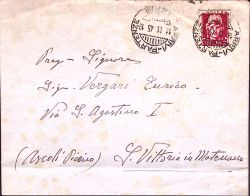 Preg. Signore
Sig. Vergari Enrico
Via S. Agostino I
(Ascoli Piceno) S. Vittoria in Matenano